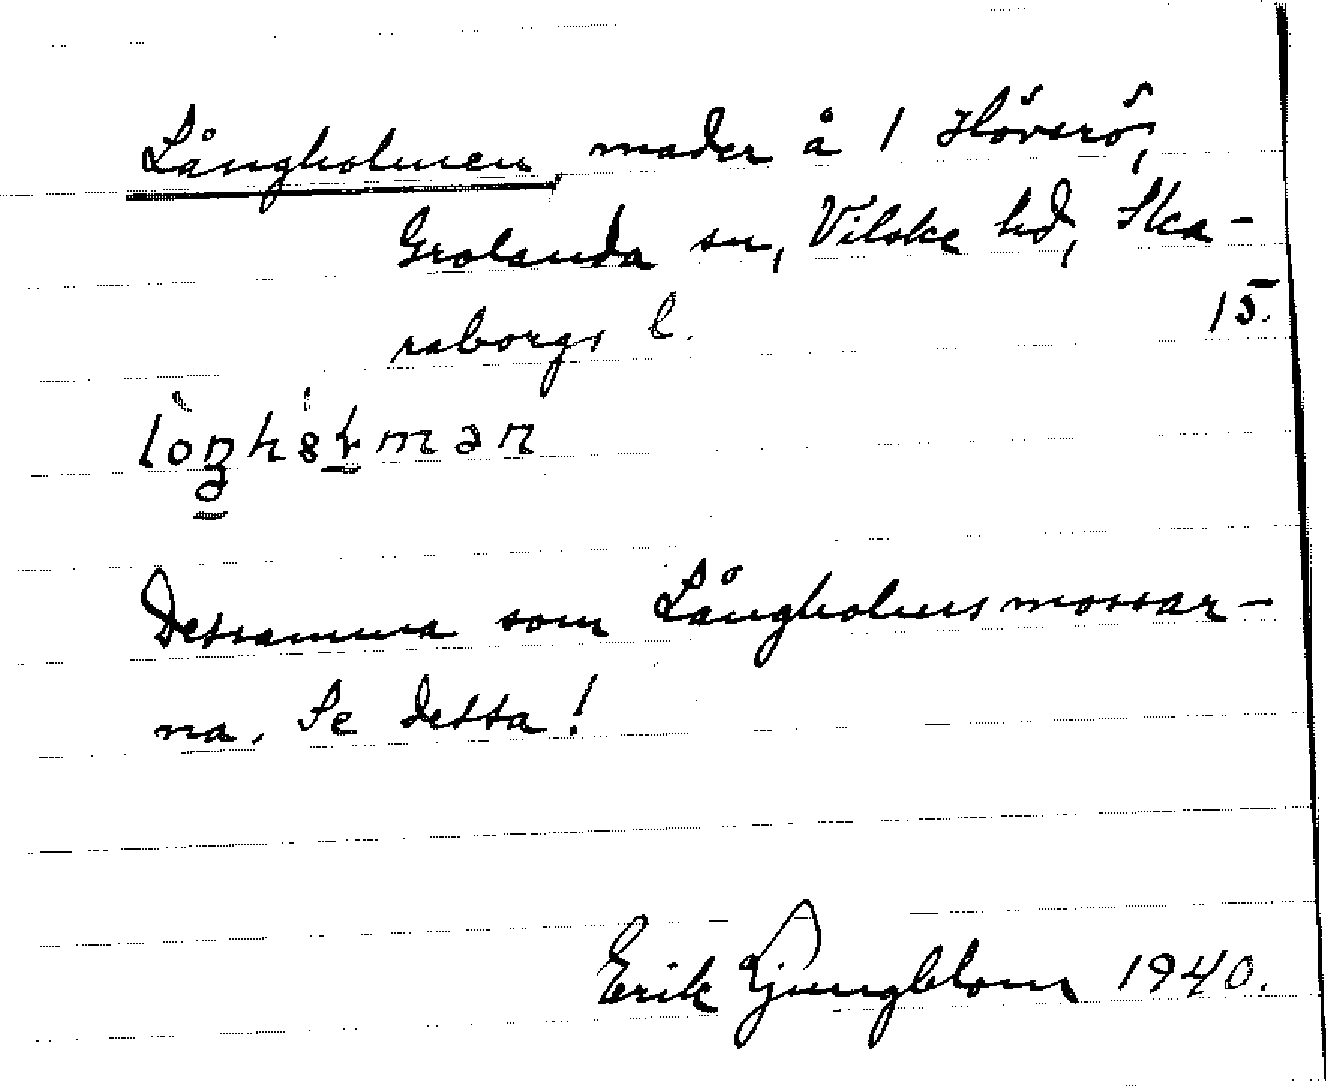 Långholmen, mader å 1 Hövserö,
Grolanda sn, Vilske hd, Ska-
raborgs l.
15.
Detsamma som Långholmsmossar-
na. Se detta!
Erik Ljungblom 1940.